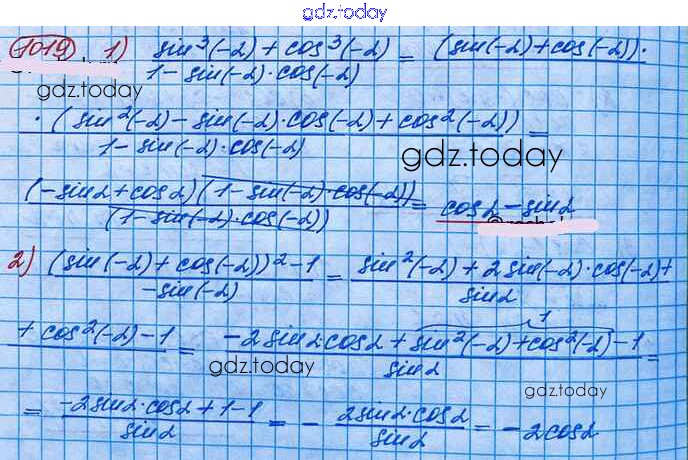 gdz.today
1019 1) (sin³(-α) + cos³(-α))/(1 - sin(-α)·cos(-α)) = (sin(-α)+cos(-α))·
gdz.today
·(sin²(-α) - sin(-α)·cos(-α) + cos²(-α))/(1 - sin(-α)·cos(-α)) =
gdz.today
((-sinα + cosα)(1 - sin(-α)·cos(-α)))/((1 - sin(-α)·cos(-α))) = cosα - sinα
2) ((sin(-α) + cos(-α))² - 1)/(-sin(-α)) = (sin²(-α) + 2sin(-α)·cos(-α) +)/(sinα)
+ cos²(-α) - 1 = (-2sinα·cosα + sin²(-α) + cos²(-α) - 1)/(sinα) =
1
gdz.today
gdz.today
= (-2sinα·cosα + 1 - 1)/(sinα) = - (2sinα·cosα)/(sinα) = -2cosα